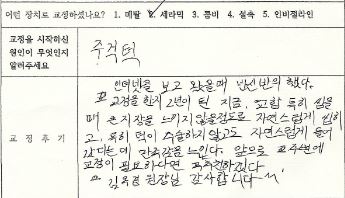 어떤 장치로 교정하셨나요? 1. 메탈 2. 세라믹 3. 콤비 4. 설측 5. 인비절라인
교정을 시작하신
원인이 무엇인지
알려주세요
주걱턱
교 정 후 기
인터넷을 보고 왔을때 반신반의 했다.
교정을 한지 2년이 된 지금, 교합 특히 씹을
때 큰 지장을 느끼지 않을정도로 자연스럽게 씹히
고, 특히 턱이 수술하지 않고도 자연스럽게 들어
갔다는데 만족감을 느낀다. 앞으로 주변에
교정이 필요하다면 추천하겠다
김 원장님 감사합니다